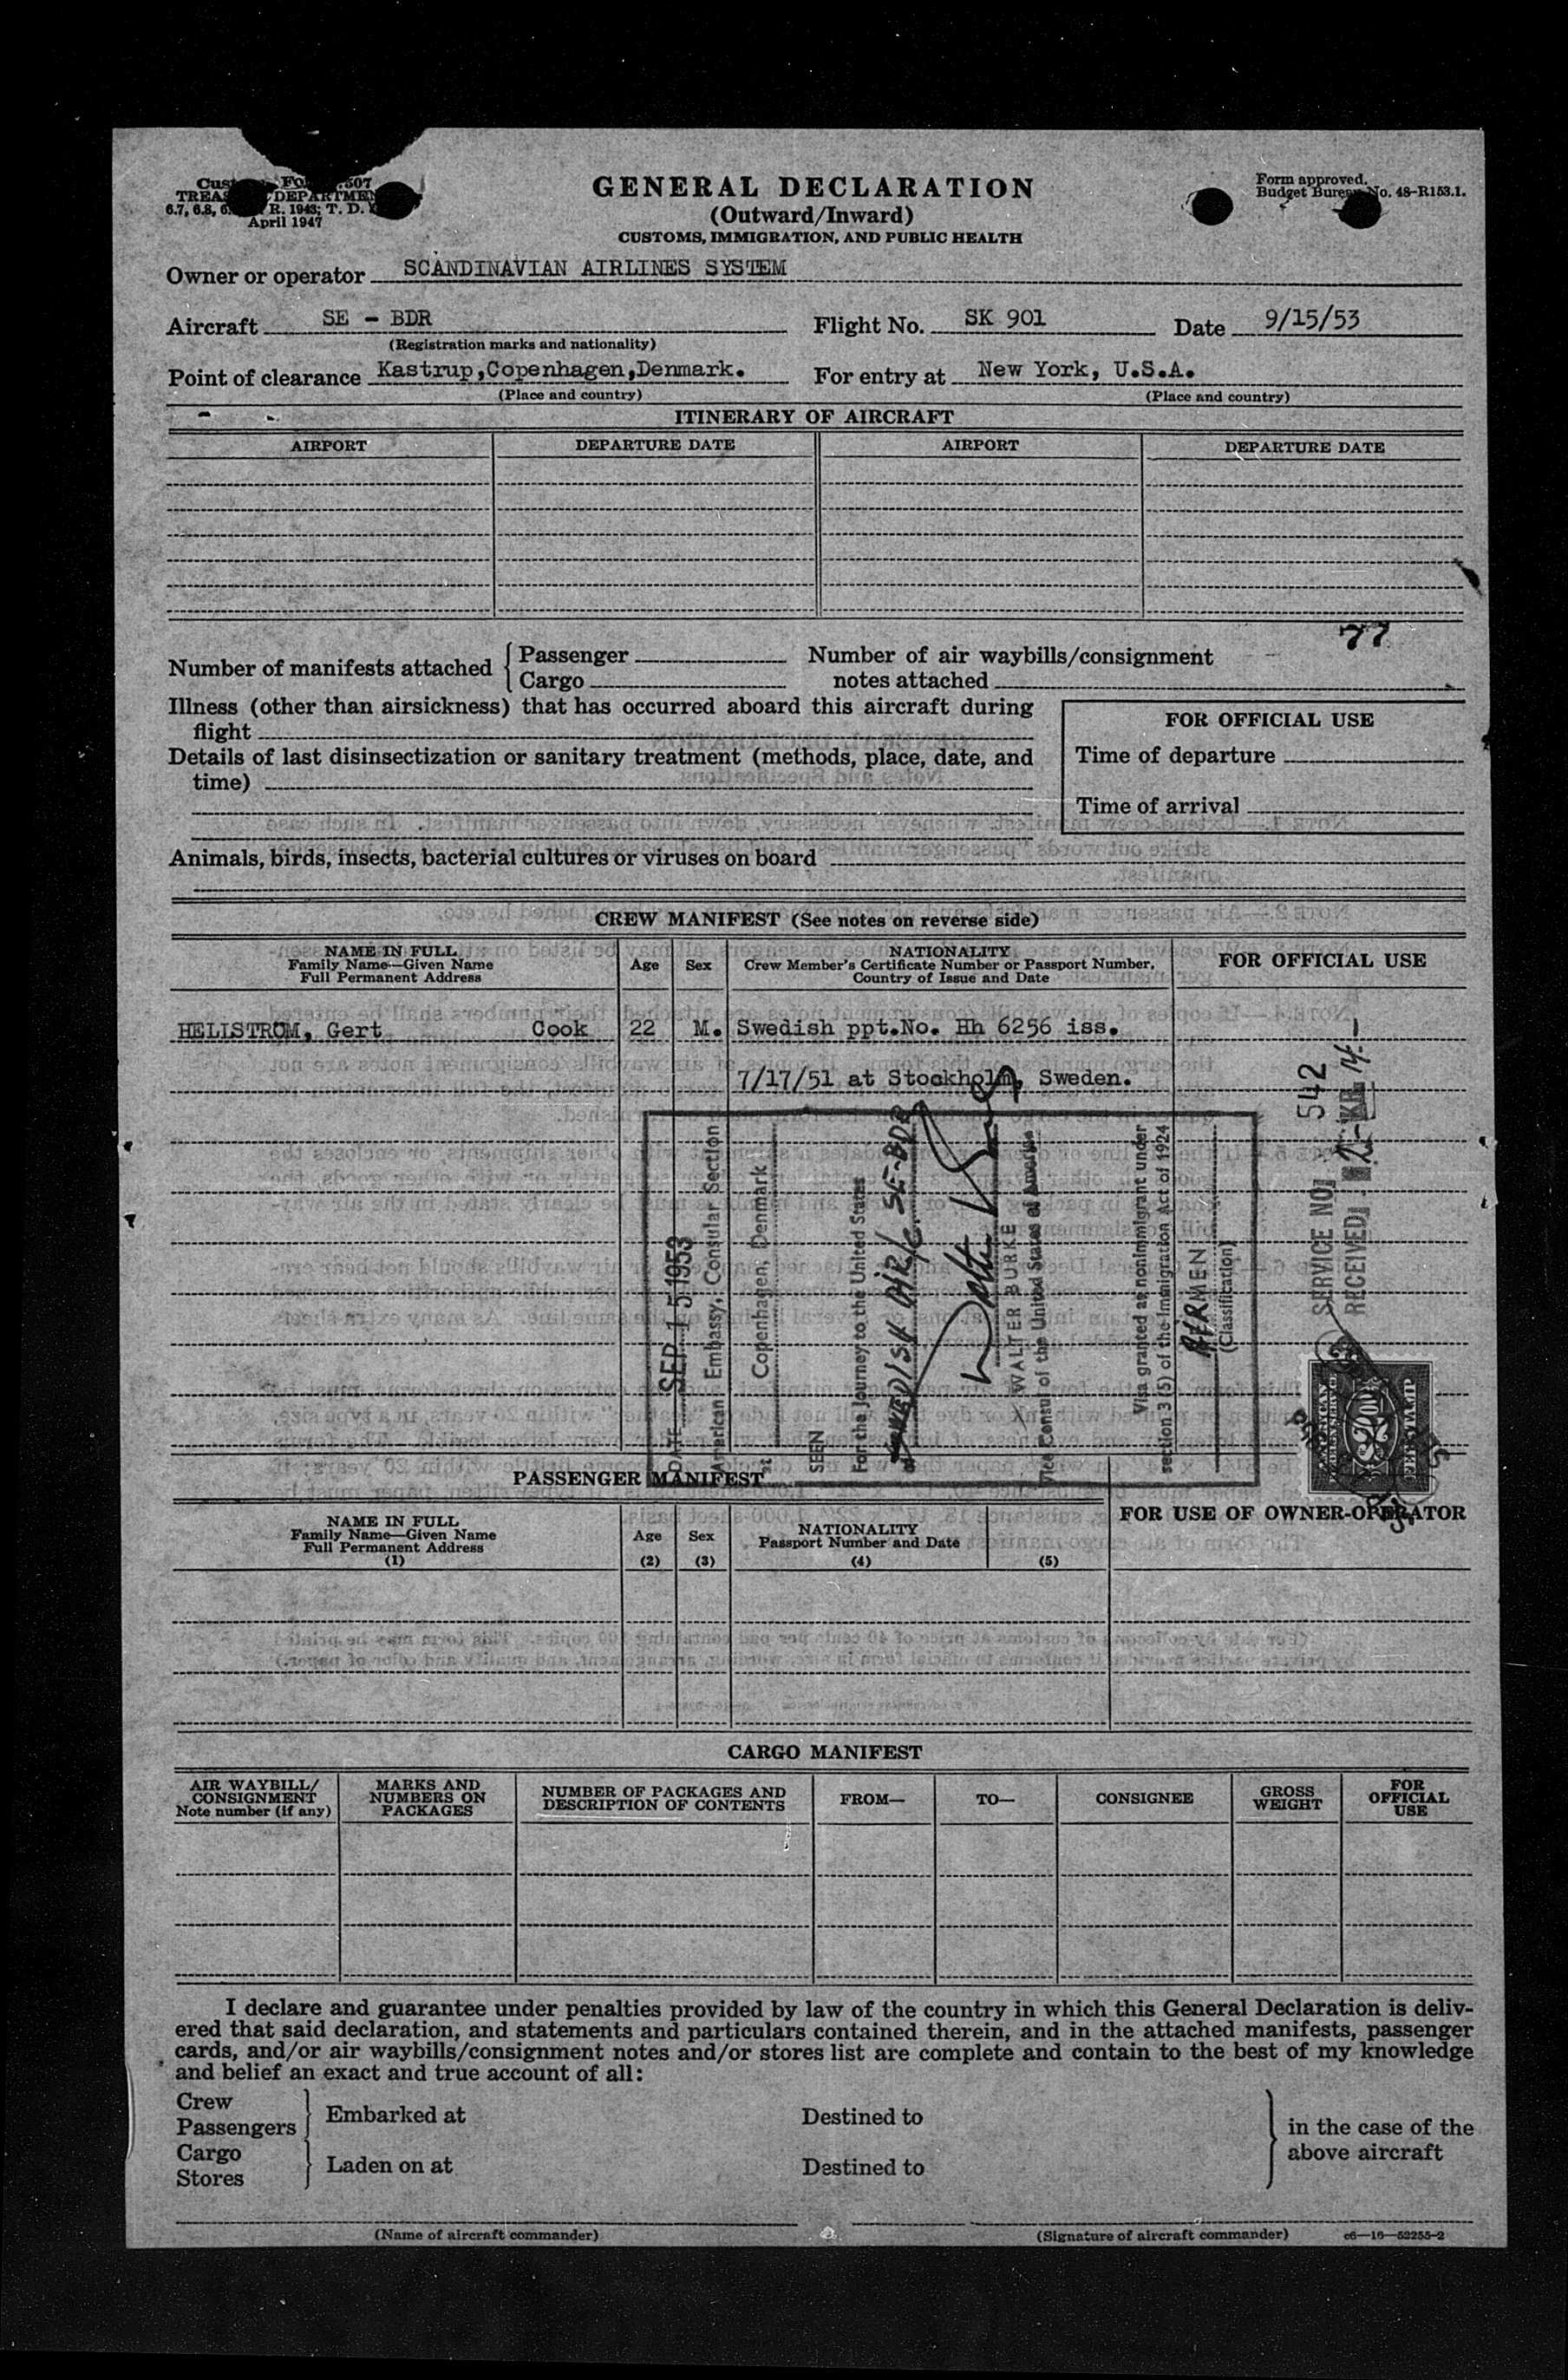 TREAS DEPARTMEN
6.7, 6.8, R. 1943; T. D.
April 1947
GENERAL DECLARATION
(Outward/Inward)
CUSTOMS, IMMIGRATION, AND PUBLIC HEALTH
Form approved.
Budget Bureau No. 48-R153.1.
Owner or operator SCANDINAVIAN AIRLINES SYSTEM
Aircraft SE - BDR Flight No. SK 901 Date 9/15/53
(Registration marks and nationality)
Point of clearance Kastrup,Copenhagen,Denmark. For entry at New York, U.S.A.
(Place and country) (Place and country)
ITINERARY OF AIRCRAFT
AIRPORT DEPARTURE DATE AIRPORT DEPARTURE DATE
77
Number of manifests attached Passenger Number of air waybills/consignment
Cargo notes attached
Illness (other than airsickness) that has occurred aboard this aircraft during
flight
FOR OFFICIAL USE
Details of last disinsectization or sanitary treatment (methods, place, date, and
time)
Time of departure
Time of arrival
Animals, birds, insects, bacterial cultures or viruses on board
CREW MANIFEST (See notes on reverse side)
NAME IN FULL
Family Name—Given Name
Full Permanent Address
Age Sex
NATIONALITY
Crew Member's Certificate Number or Passport Number,
Country of Issue and Date
FOR OFFICIAL USE
HELLSTROM, Gert Cook 22 M. Swedish ppt.No. Hh 6256 iss.
7/17/51 at Stockholm, Sweden.
DATE SEP 15 1953
American Embassy, Consular Section
at Copenhagen, Denmark
SEEN
For the journey to the United States
SWEDISH AIR/C. SE-BDR
WALTER BURKE
Vice Consul of the United States of America
Visa granted as nonimmigrant under
section 3 (5) of the Immigration Act of 1924
AIRMEN
(Classification)
SERVICE NO. 542
RECEIVED: KR 14.—
PASSENGER MANIFEST
FOR USE OF OWNER-OPERATOR
NAME IN FULL
Family Name—Given Name
Full Permanent Address
(1)
Age
(2)
Sex
(3)
NATIONALITY
Passport Number and Date
(4) (5)
CARGO MANIFEST
AIR WAYBILL/
CONSIGNMENT
Note number (if any)
MARKS AND
NUMBERS ON
PACKAGES
NUMBER OF PACKAGES AND
DESCRIPTION OF CONTENTS
FROM— TO— CONSIGNEE
GROSS
WEIGHT
FOR
OFFICIAL
USE
I declare and guarantee under penalties provided by law of the country in which this General Declaration is deliv-
ered that said declaration, and statements and particulars contained therein, and in the attached manifests, passenger
cards, and/or air waybills/consignment notes and/or stores list are complete and contain to the best of my knowledge
and belief an exact and true account of all:
Crew
Passengers Embarked at Destined to in the case of the
Cargo above aircraft
Stores Laden on at Destined to
(Name of aircraft commander) (Signature of aircraft commander) c6—16—52255-2